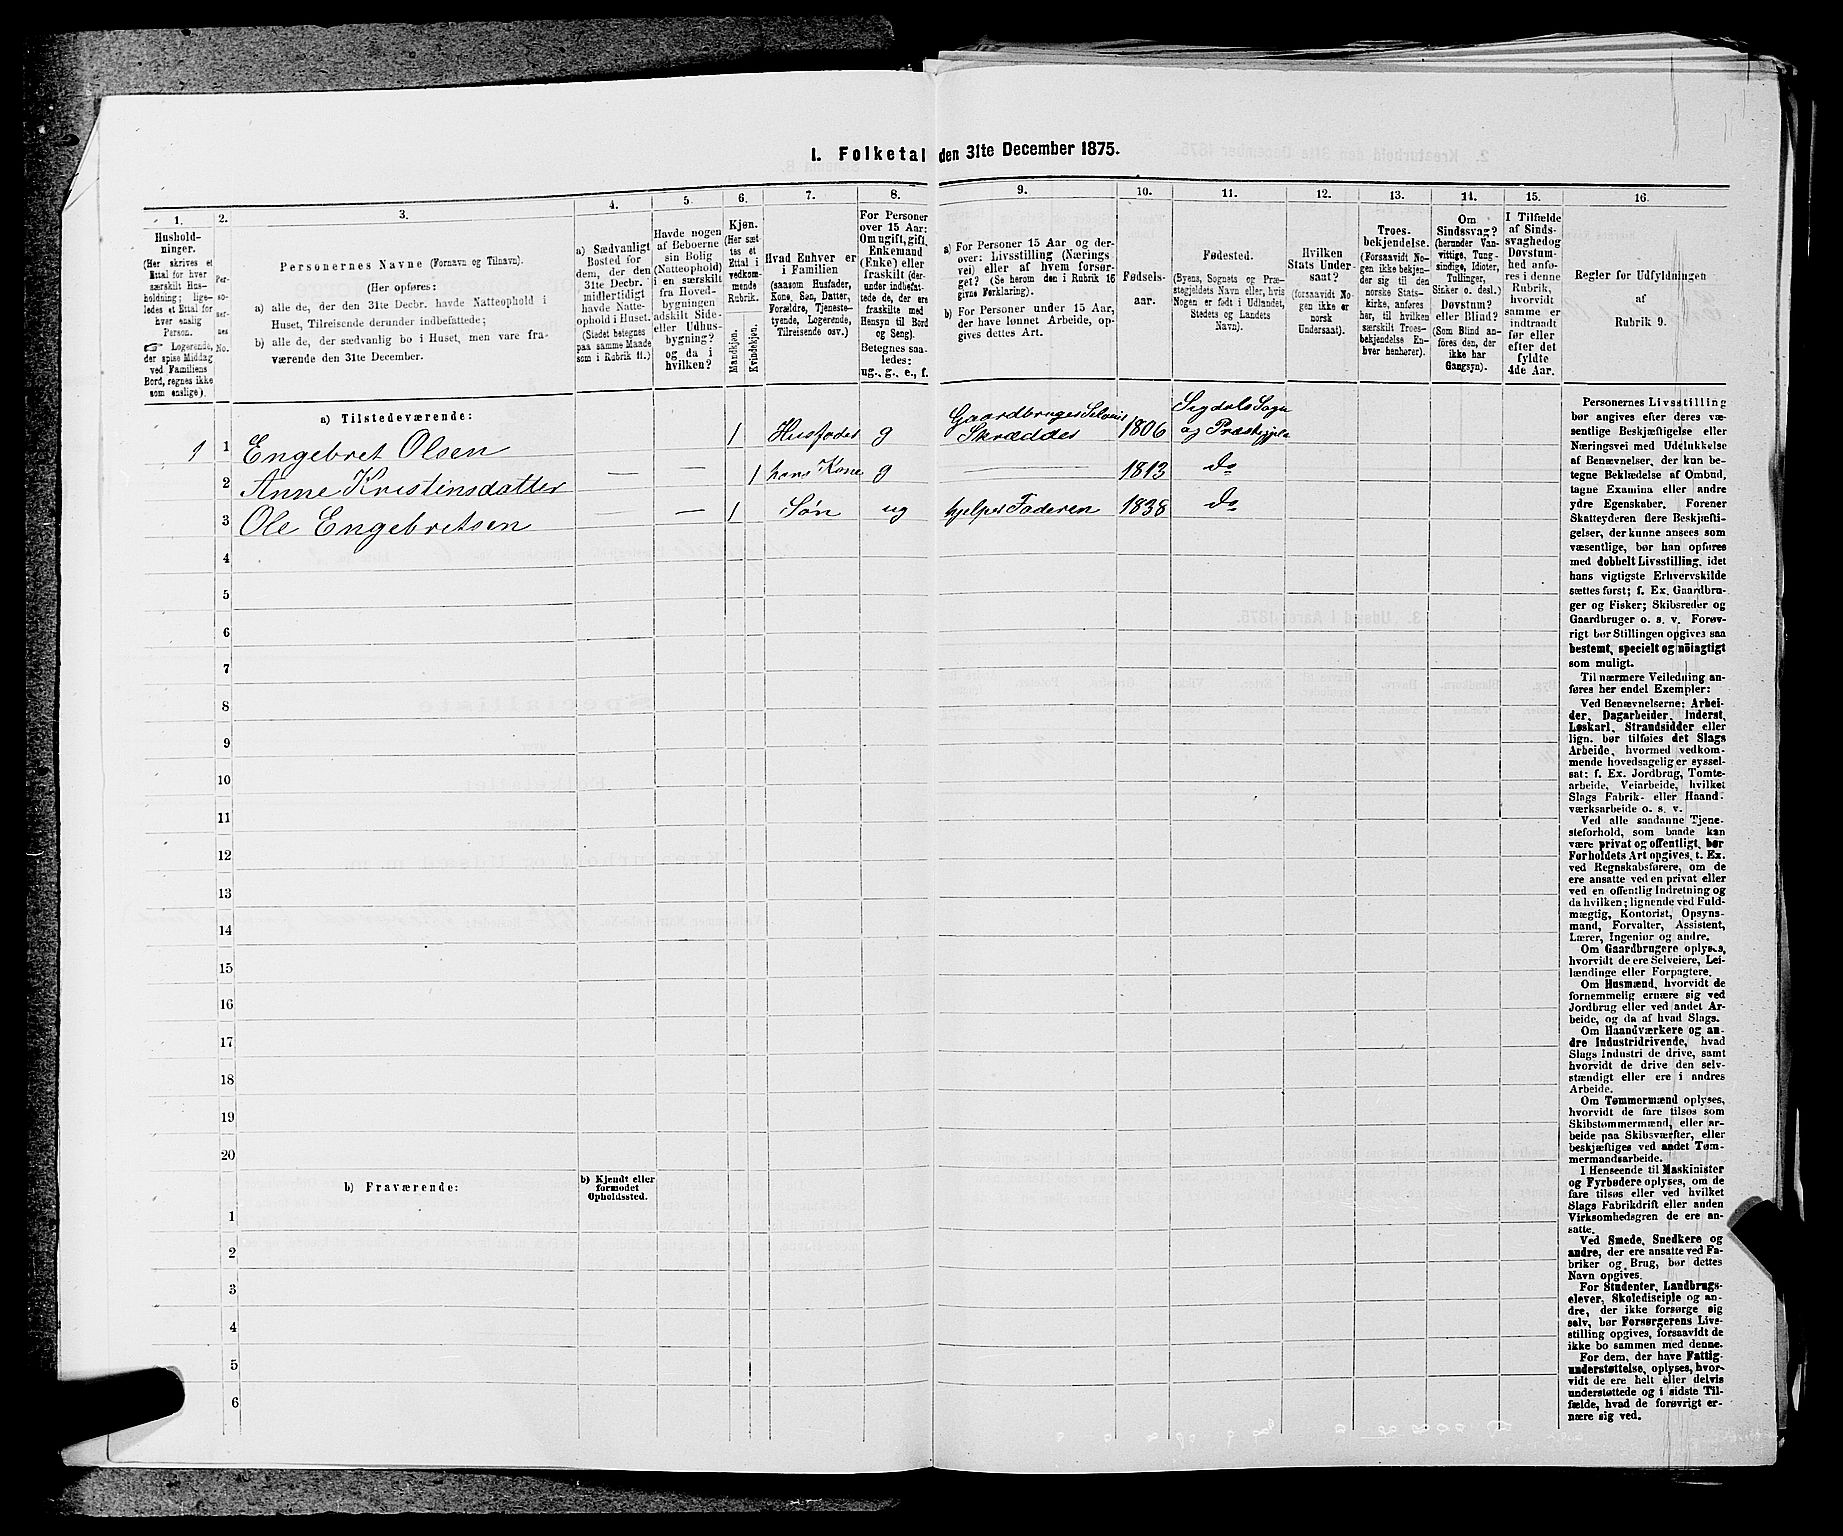 I. Folketal den 31te December 1875.
1.
Hushold-
ninger.
(Her skrives et
Ettal for hver
særskilt Hus-
holdning; lige-
ledes et Ettal for
hver enslig
Person.
☞ Logerende,
der spise Middag
ved Familiens
Bord, regnes ikke
som enslige).
2.
Per-
so-
ner-
nes
No.
3.
Personernes Navne (Fornavn og Tilnavn).
(Her opføres:
a) alle de, der den 31te Decbr. havde Natteophold i
Huset, Tilreisende derunder indbefattede;
b) alle de, der sædvanlig bo i Huset, men vare fra-
værende den 31te December.
4.
a) Sædvanligt
Bosted for
dem, der den
31te Decbr.
midlertidigt
havde Natte-
ophold i Huset.
(Stedet betegnes
paa samme Maade
som i Rubrik 11.)
5.
Havde nogen
af Beboerne
sin Bolig
(Natteophold)
i en særskilt
fra Hoved-
bygningen
adskilt Side-
eller Udhus-
bygning?
og da i
hvilken?
6.
Kjøn.
(Her sæt-
tes et
Ettal i
vedkom-
mende
Rubrik.
Mandkjøn.
Kvindekjøn.
7.
Hvad Enhver er
i Familien
(saasom Husfader,
Kone, Søn, Datter,
Forældre, Tjeneste-
tyende, Logerende,
Tilreisende osv.)
8.
For Personer
over 15 Aar:
Om ugift, gift,
Enkemand
(Enke) eller
fraskilt (der-
under indbefat-
tede de, der ere
fraskilte med
Hensyn til Bord
og Seng).
Betegnes saa-
ledes:
ug., g., e., f.
9.
a) For Personer 15 Aar og der-
over: Livsstilling (Nærings-
vei) eller af hvem forsør-
get? (Se herom den i Rubrik 16
givne Forklaring).
b) For Personer under 15 Aar,
der have lønnet Arbeide, op-
gives dettes Art.
10.
Fødsels-
aar.
11.
Fødested.
(Byens, Sognets og Præ-
stegjeldets Navn eller, hvis
Nogen er født i Udlandet,
Stedets og Landets
Navn).
12.
Hvilken
Stats Under-
saat?
(forsaavidt No-
gen ikke er
norsk
Undersaat).
13.
Troes-
bekjendelse.
(Forsaavidt No-
gen ikke bekjen-
der sig til den
norske Stats-
kirke, anføres
her, til hvilken
særskilt Troes-
bekjendelse En-
hver henhører).
14.
Om
Sindssvag?
(herunder Van-
vittige, Tung-
sindige, Idioter,
Tullinger,
Sinker o. desl.)
Døvstum?
eller Blind?
(Som Blind an-
føres den, der
ikke har
Gangsyn).
15.
I Tilfælde
af Sinds-
svaghed og
Døvstum-
hed anfø-
res i denne
Rubrik,
hvorvidt
samme er
indtraadt
før eller
efter det
fyldte
4de Aar.
16.
Regler for Udfyldningen
af
Rubrik 9.
a) Tilstedeværende:
1 1 Engebret Olsen 1 Husfader g Gaardbruger Selveier Skrædder 1806 Sigdals Sogn og Præstegjeld
2 Anne Kristinsdatter — — 1 hans Kone g — 1813 do
3 Ole Engebretsen — — 1 Søn ug hjelper Faderen 1838 do
4
5
6
7
8
9
10
11
12
13
14
15
16
17
18
19
20
b) Fraværende:
b) Kjendt eller
formodet
Opholdssted.
1
2
3
4
5
6
Personernes Livsstilling
bør angives efter deres væ-
sentlige Beskjæftigelse eller
Næringsvei med Udelukkelse
af Benævnelser, der kun be-
tegne Beklædelse af Ombud,
tagne Examina eller andre
ydre Egenskaber. Forener
Skatteyderen flere Beskjæfti-
gelser, der kunne ansees som
væsentlige, bør han opføres
med dobbelt Livsstilling, idet
hans vigtigste Erhvervskilde
sættes først; f. Ex. Gaardbru-
ger og Fisker; Skibsreder og
Gaardbruger o. s. v. Forøv-
rigt bør Stillingen opgives saa
bestemt, specielt og nöiagtigt
som muligt.
Til nærmere Veiledning an-
føres her endel Exempler:
Ved Benævnelserne: Arbei-
der, Dagarbeider, Inderst,
Løskarl, Strandsidder eller
lign. bør tilføies det Slags
Arbeide, hvormed vedkom-
mende hovedsagelig er syssel-
sat: f. Ex. Jordbrug, Tomte-
arbeide, Veiarbeide, hvilket
Slags Fabrik- eller Haand-
værksarbeide o. s. v.
Ved alle saadanne Tjene-
steforhold, som baade kan
være privat og offentligt, bør
Forholdets Art opgives, t. Ex.
ved Regnskabsførere, om de
ere ansatte ved en privat eller
ved en offentlig Indretning og
da hvilken; lignende ved Fuld-
mægtig, Kontorist, Opsyns-
mand, Forvalter, Assistent,
Lærer, Ingeniør og andre.
Om Gaardbrugere oplyses,
hvorvidt de ere Selveiere, Lei-
lændinge eller Forpagtere.
Om Husmænd, hvorvidt de
fornemmelig ernære sig ved
Jordbrug eller ved andet Ar-
beide, og da af hvad Slags.
Om Haandværkere og an-
dre Industridrivende, hvad
Slags Industri de drive, samt
hvorvidt de drive den selv-
stændigt eller ere i andres
Arbeide.
Om Tømmermænd oplyses,
hvorvidt de fare tilsøs som
Skibstømmermænd, eller ar-
beide paa Skibsværfter, eller
beskjæftiges ved andet Tøm-
mermandsarbeide.
I Henseende til Maskinister
og Fyrbødere oplyses, om de
fare tilsøs eller ved hvilket
Slags Fabrikdrift eller anden
Virksomhedsgren de ere an-
satte.
Ved Smede, Snedkere og
andre, der ere ansatte ved Fa-
briker og Brug, bør dettes
Navn opgives.
For Studenter, Landbrugs-
elever, Skoledisciple og an-
dre, der ikke forsørge sig
selv, bør Forsørgerens Livs-
stilling opgives, forsaavidt de
ikke bo sammen med denne.
For dem, der have Fattig-
understøttelse, oplyses, hvor-
vidt de ere helt eller delvis
understøttede og i sidste Til-
fælde, hvad de forøvrigt er-
nære sig ved.